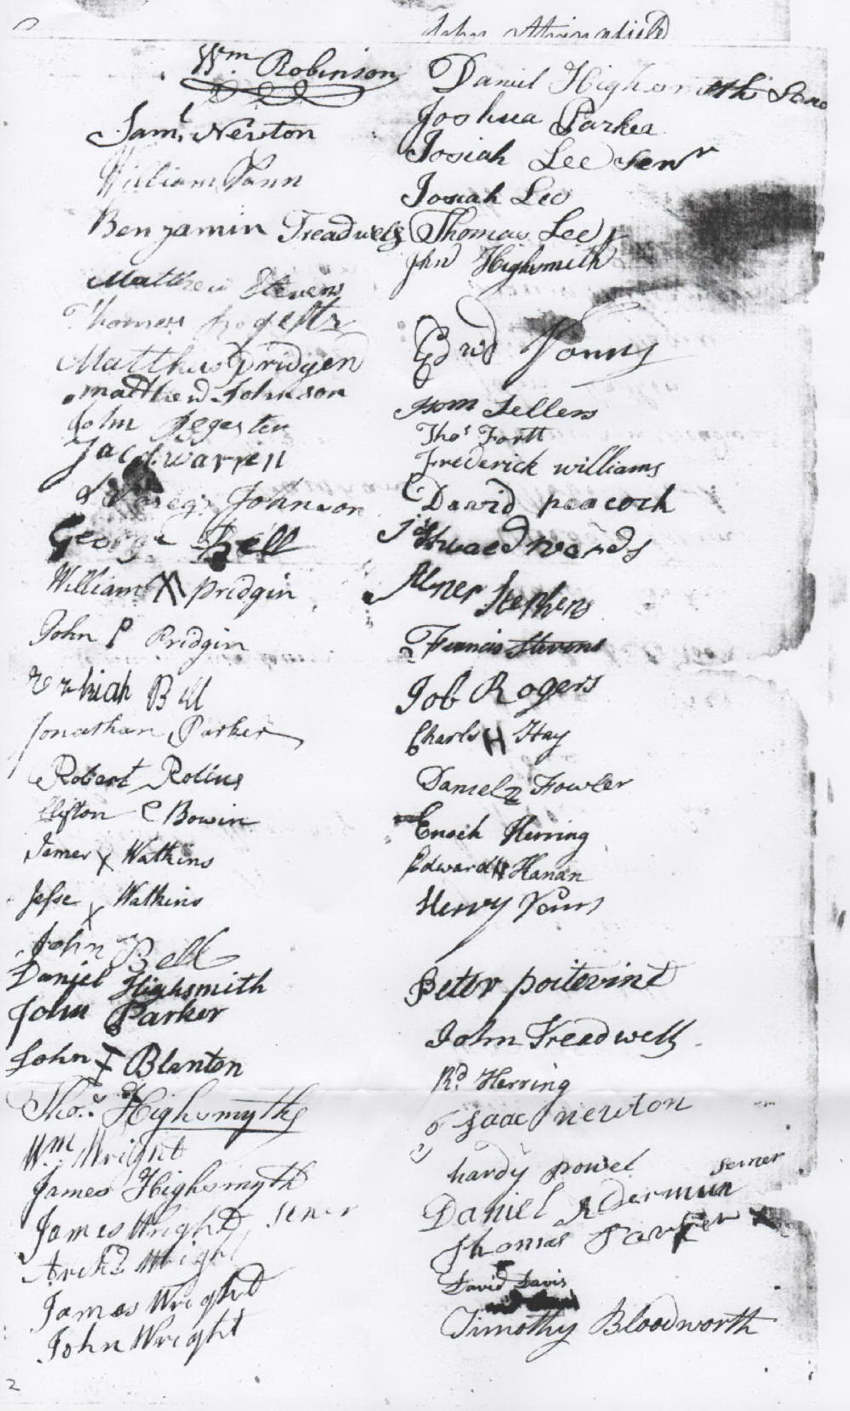 John
Wm. Robinson
Saml. Newton
William
Benjamin Treadwell
Matthew Stevens
Thomas
Matthew Pridgen
matthew Johnson
John Regester
Jacob Warren
Johnson
George Bell
William X pridgin
John P Pridgin
Bell
Jonathan Parker
Robert Rolins
Clifton C Bowin
James X Watkins
Jesse X Watkins
John Bell
Daniel Highsmith
John Parker
John I Blanton
Thos. Highsmyth
Wm Wright
James Highsmyth
James Wright, Sener
Archd Wright
James Wright
John Wright
2
Daniel Highsmith
Joshua Parker
Josiah Lee Senr
Josiah Lee
Thomas Lee
Jhno Highsmith
Edwd
Sellers
Thos Forth
Frederick williams
David peacock
Edwards
Abner Stephens
Francis Stevens
Job Rogers
Charls H Hay
Daniel Fowler
Enoch Herring
Edward H Hanan
Henry
Peter poitevint
John Treadwell
Rd Herring
Isaac newton
hardy powel
Daniel Alderman senier
Thomas Parker X
David Davis
Timothy Bloodworth